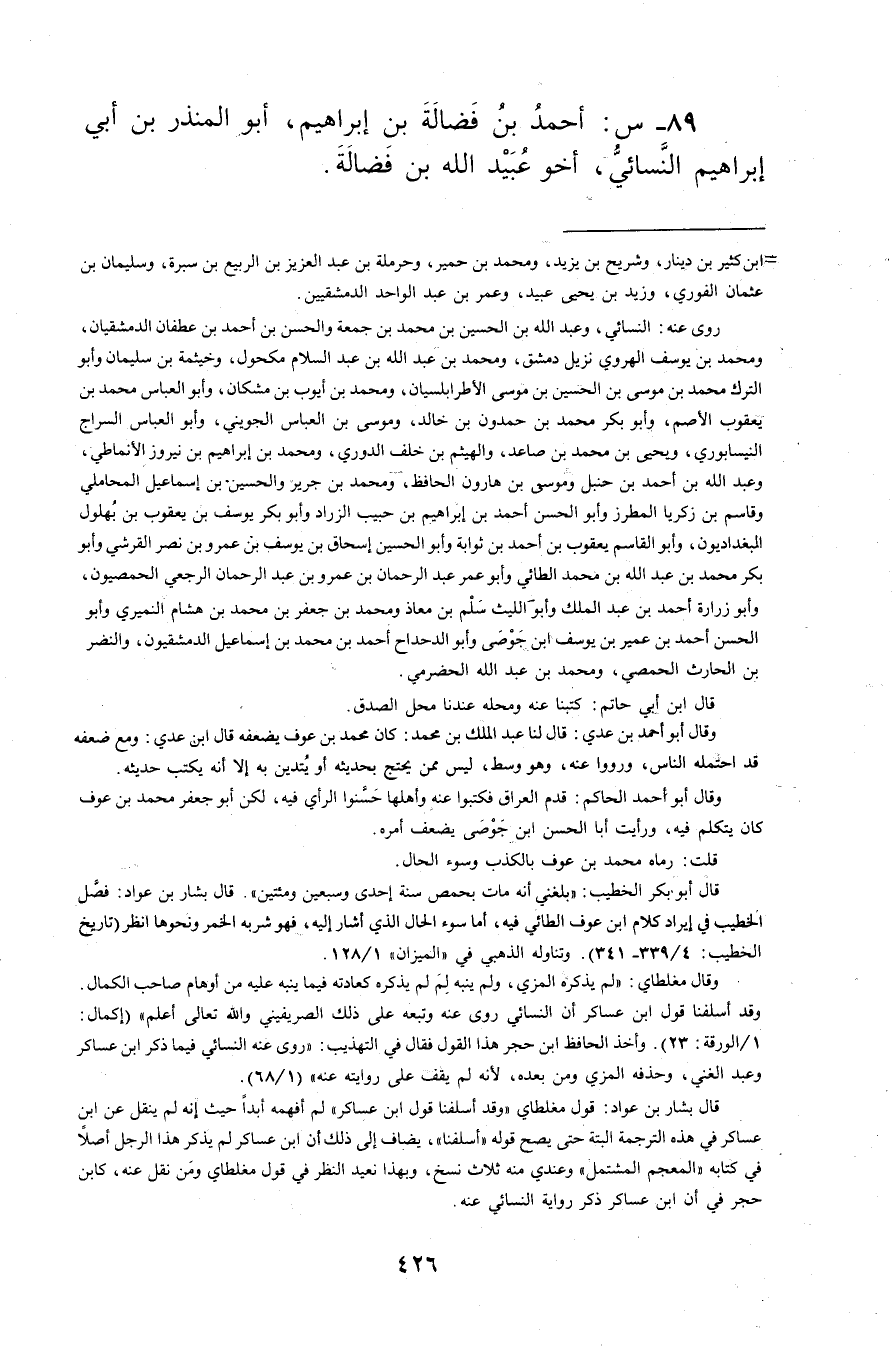 ٨٩ـ س: أحمدُ بنُ فَضالَةَ بن إبراهيم، أبو المنذر بن أبي
إبراهيم النَّسائيُّ، أخو عُبَيْد الله بن فَضالَةَ.
=ابن كثير بن دينار، وشريح بن يزيد، ومحمد بن حمير، وحرملة بن عبد العزيز بن الربيع بن سبرة، وسليمان بن
عثمان الفوري، وزيد بن يحيى عبيد، وعمر بن عبد الواحد الدمشقيين.
روى عنه: النسائي، وعبد الله بن الحسين بن محمد بن جمعة والحسن بن أحمد بن عطفان الدمشقيان،
ومحمد بن يوسف الهروي نزيل دمشق، ومحمد بن عبد الله بن عبد السلام مكحول، وخيثمة بن سليمان وأبو
الترك محمد بن موسى بن الحسين بن موسى الأطرابلسيان، ومحمد بن أيوب بن مشكان، وأبو العباس محمد بن
يعقوب الأصم، وأبو بكر محمد بن حمدون بن خالد، وموسى بن العباس الجويني، وأبو العباس السراج
النيسابوري، ويحيى بن محمد بن صاعد، والهيثم بن خلف الدوري، ومحمد بن إبراهيم بن نيروز الأنماطي،
وعبد الله بن أحمد بن حنبل وموسى بن هارون الحافظ، ومحمد بن جرير والحسين بن إسماعيل المحاملي
وقاسم بن زكريا المطرز وأبو الحسن أحمد بن إبراهيم بن حبيب الزراد وأبو بكر يوسف بن يعقوب بن بُهلول
البغداديون، وأبو القاسم يعقوب بن أحمد بن ثوابة وأبو الحسين إسحاق بن يوسف بن عمرو بن نصر القرشي وأبو
بكر محمد بن عبد الله بن محمد الطائي وأبو عمر عبد الرحمان بن عمرو بن عبد الرحمان الرجعي الحمصيون،
وأبو زرارة أحمد بن عبد الملك وأبو الليث سَلْم بن معاذ ومحمد بن جعفر بن محمد بن هشام النميري وأبو
الحسن أحمد بن عمير بن يوسف ابن جَوْصَى وأبو الدحداح أحمد بن محمد بن إسماعيل الدمشقيون، والنضر
بن الحارث الحمصي، ومحمد بن عبد الله الحضرمي.
قال ابن أبي حاتم: كتبنا عنه ومحله عندنا محل الصدق.
وقال أبو أحمد بن عدي: قال لنا عبد الملك بن محمد: كان محمد بن عوف يضعفه قال ابن عدي: ومع ضعفه
قد احتمله الناس، ورووا عنه، وهو وسط، ليس ممن يحتج بحديثه أو يُتدين به إلا أنه يكتب حديثه.
وقال أبو أحمد الحاكم: قدم العراق فكتبوا عنه وأهلها حَسَّنوا الرأي فيه، لكن أبو جعفر محمد بن عوف
كان يتكلم فيه، ورأيت أبا الحسن ابن جَوْصَى يضعف أمره.
قلت: رماه محمد بن عوف بالكذب وسوء الحال.
قال أبو بكر الخطيب: «بلغني أنه مات بحمص سنة إحدى وسبعين ومئتين». قال بشار بن عواد: فصَّل
الخطيب في إيراد كلام ابن عوف الطائي فيه، أما سوء الحال الذي أشار إليه، فهو شربه الخمر ونحوها انظر (تاريخ
الخطيب: ٤/ ٣٣٩ـ ٣٤١). وتناوله الذهبي في «الميزان» ١/ ١٢٨.
وقال مغلطاي: «لم يذكره المزي، ولم ينبه لِمَ لم يذكره كعادته فيما ينبه عليه من أوهام صاحب الكمال.
وقد أسلفنا قول ابن عساكر أن النسائي روى عنه وتبعه على ذلك الصريفيني والله تعالى أعلم» (إكمال:
١/الورقة: ٢٣). وأخذ الحافظ ابن حجر هذا القول فقال في التهذيب: «روى عنه النسائي فيما ذكر ابن عساكر
وعبد الغني، وحذفه المزي ومن بعده، لأنه لم يقف على روايته عنه» (١/ ٦٨).
قال بشار بن عواد: قول مغلطاي «وقد أسلفنا قول ابن عساكر» لم أفهمه أبداً حيث إنه لم ينقل عن ابن
عساكر في هذه الترجمة البتة حتى يصح قوله «أسلفنا»، يضاف إلى ذلك أن ابن عساكر لم يذكر هذا الرجل أصلاً
في كتابه «المعجم المشتمل» وعندي منه ثلاث نسخ، وبهذا نعيد النظر في قول مغلطاي ومَن نقل عنه، كابن
حجر في أن ابن عساكر ذكر رواية النسائي عنه.
٤٢٦